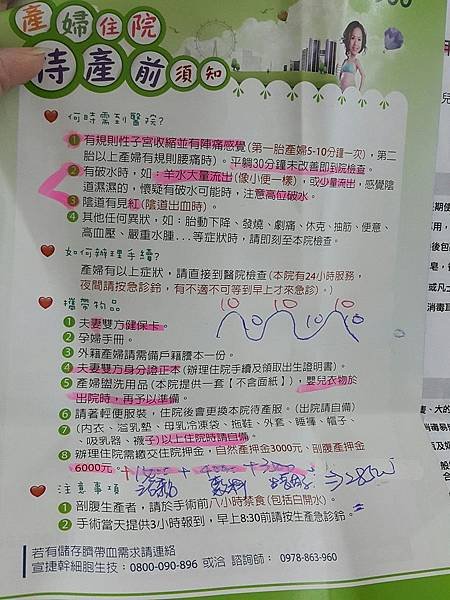 產婦住院
待產前須知
何時需到醫院?
1 有規則性子宮收縮並有陣痛感覺(第一胎產婦5-10分鐘一次),第二
胎以上產婦有規則腰痛時)。平躺30分鐘未改善即到院檢查。
2 有破水時,如:羊水大量流出(像小便一樣),或少量流出,感覺陰
道濕濕的,懷疑有破水可能時,注意高位破水。
3 陰道有見紅(陰道出血時)。
4 其他任何異狀,如:胎動下降、發燒、劇痛、休克、抽筋、便意、
高血壓、嚴重水腫...等症狀時,請即刻至本院檢查。
如何辦理手續?
產婦有以上症狀,請直接到醫院檢查(本院有24小時服務,
夜間請按急診鈴,有不適不可等到早上才來急診)。)
攜帶物品
10 10 10
10 10
1 夫妻雙方健保卡。
2 孕婦手冊。
3 外籍產婦請需備戶籍謄本一份。
4 夫妻雙方身分證正本(辦理住院手續及領取出生證明書)。
5 產婦盥洗用品(本院提供一套【不含面紙】),嬰兒衣物於
出院時,再予以準備。
6 請著輕便服裝,住院後會更換本院待產服。(出院請自備)
7 (內衣、溢乳墊、母乳冷凍袋、拖鞋、外套、睡褲、帽子、
、吸乳器、襪子)以上住院時請自備。
8 辦理住院需繳交住院押金,自然產押金3000元、剖腹產押金
6000元。
注意事項
1 剖腹生產者,請於手術前八小時禁食(包括白開水)。
2 手術當天提供3小時報到,早上8:30前請按生產急診鈴。
若有儲存臍帶血需求請連絡
宣捷幹細胞生技:0800-090-896 或洽 諮詢師: 0978-863-960